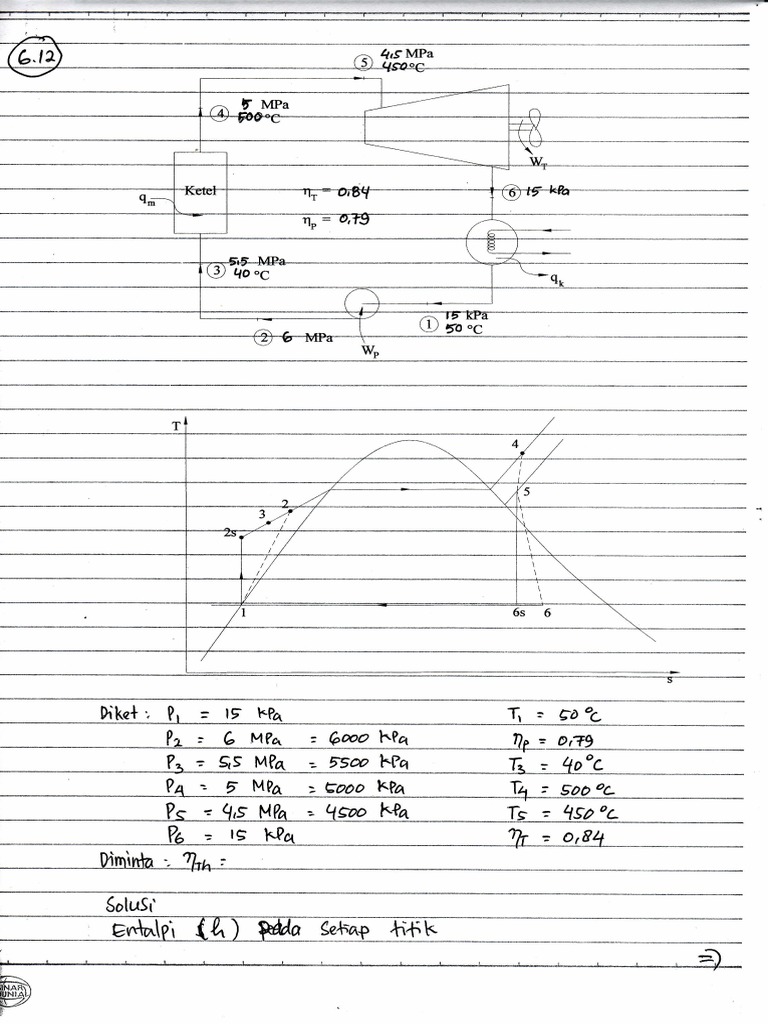 6.12
⑤ 4,5 MPa
450 °C
④ 5 MPa
500 °C
W_T
Ketel
q_m
η_T = 0,84
η_P = 0,79
⑥ 15 kPa
③ 5,5 MPa
40 °C
q_k
① 15 kPa
50 °C
② 6 MPa
W_P
T
4
5
2
3
2s
1
6s
6
s
Diket : P1 = 15 kPa T1 = 50 °C
P2 = 6 MPa = 6000 kPa ηp = 0,79
P3 = 5,5 MPa = 5500 kPa T3 = 40 °C
P4 = 5 MPa = 5000 kPa T4 = 500 °C
P5 = 4,5 MPa = 4500 kPa T5 = 450 °C
P6 = 15 kPa ηT = 0,84
Diminta : ηTh =
Solusi
Entalpi (h) pada setiap titik
=)